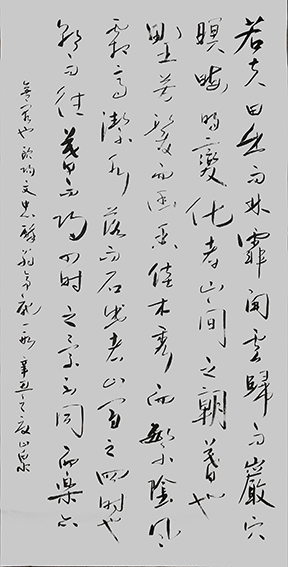 若夫日出而林霏開雲歸而巖穴
暝晦明變化者山間之朝暮也
野芳發而幽香佳木秀而繁陰風
霜高潔水落而石出者山間之四時也
朝而往暮而歸四時之景不同而樂亦
無窮也歐陽文忠醉翁亭記一段辛丑之夏山泉